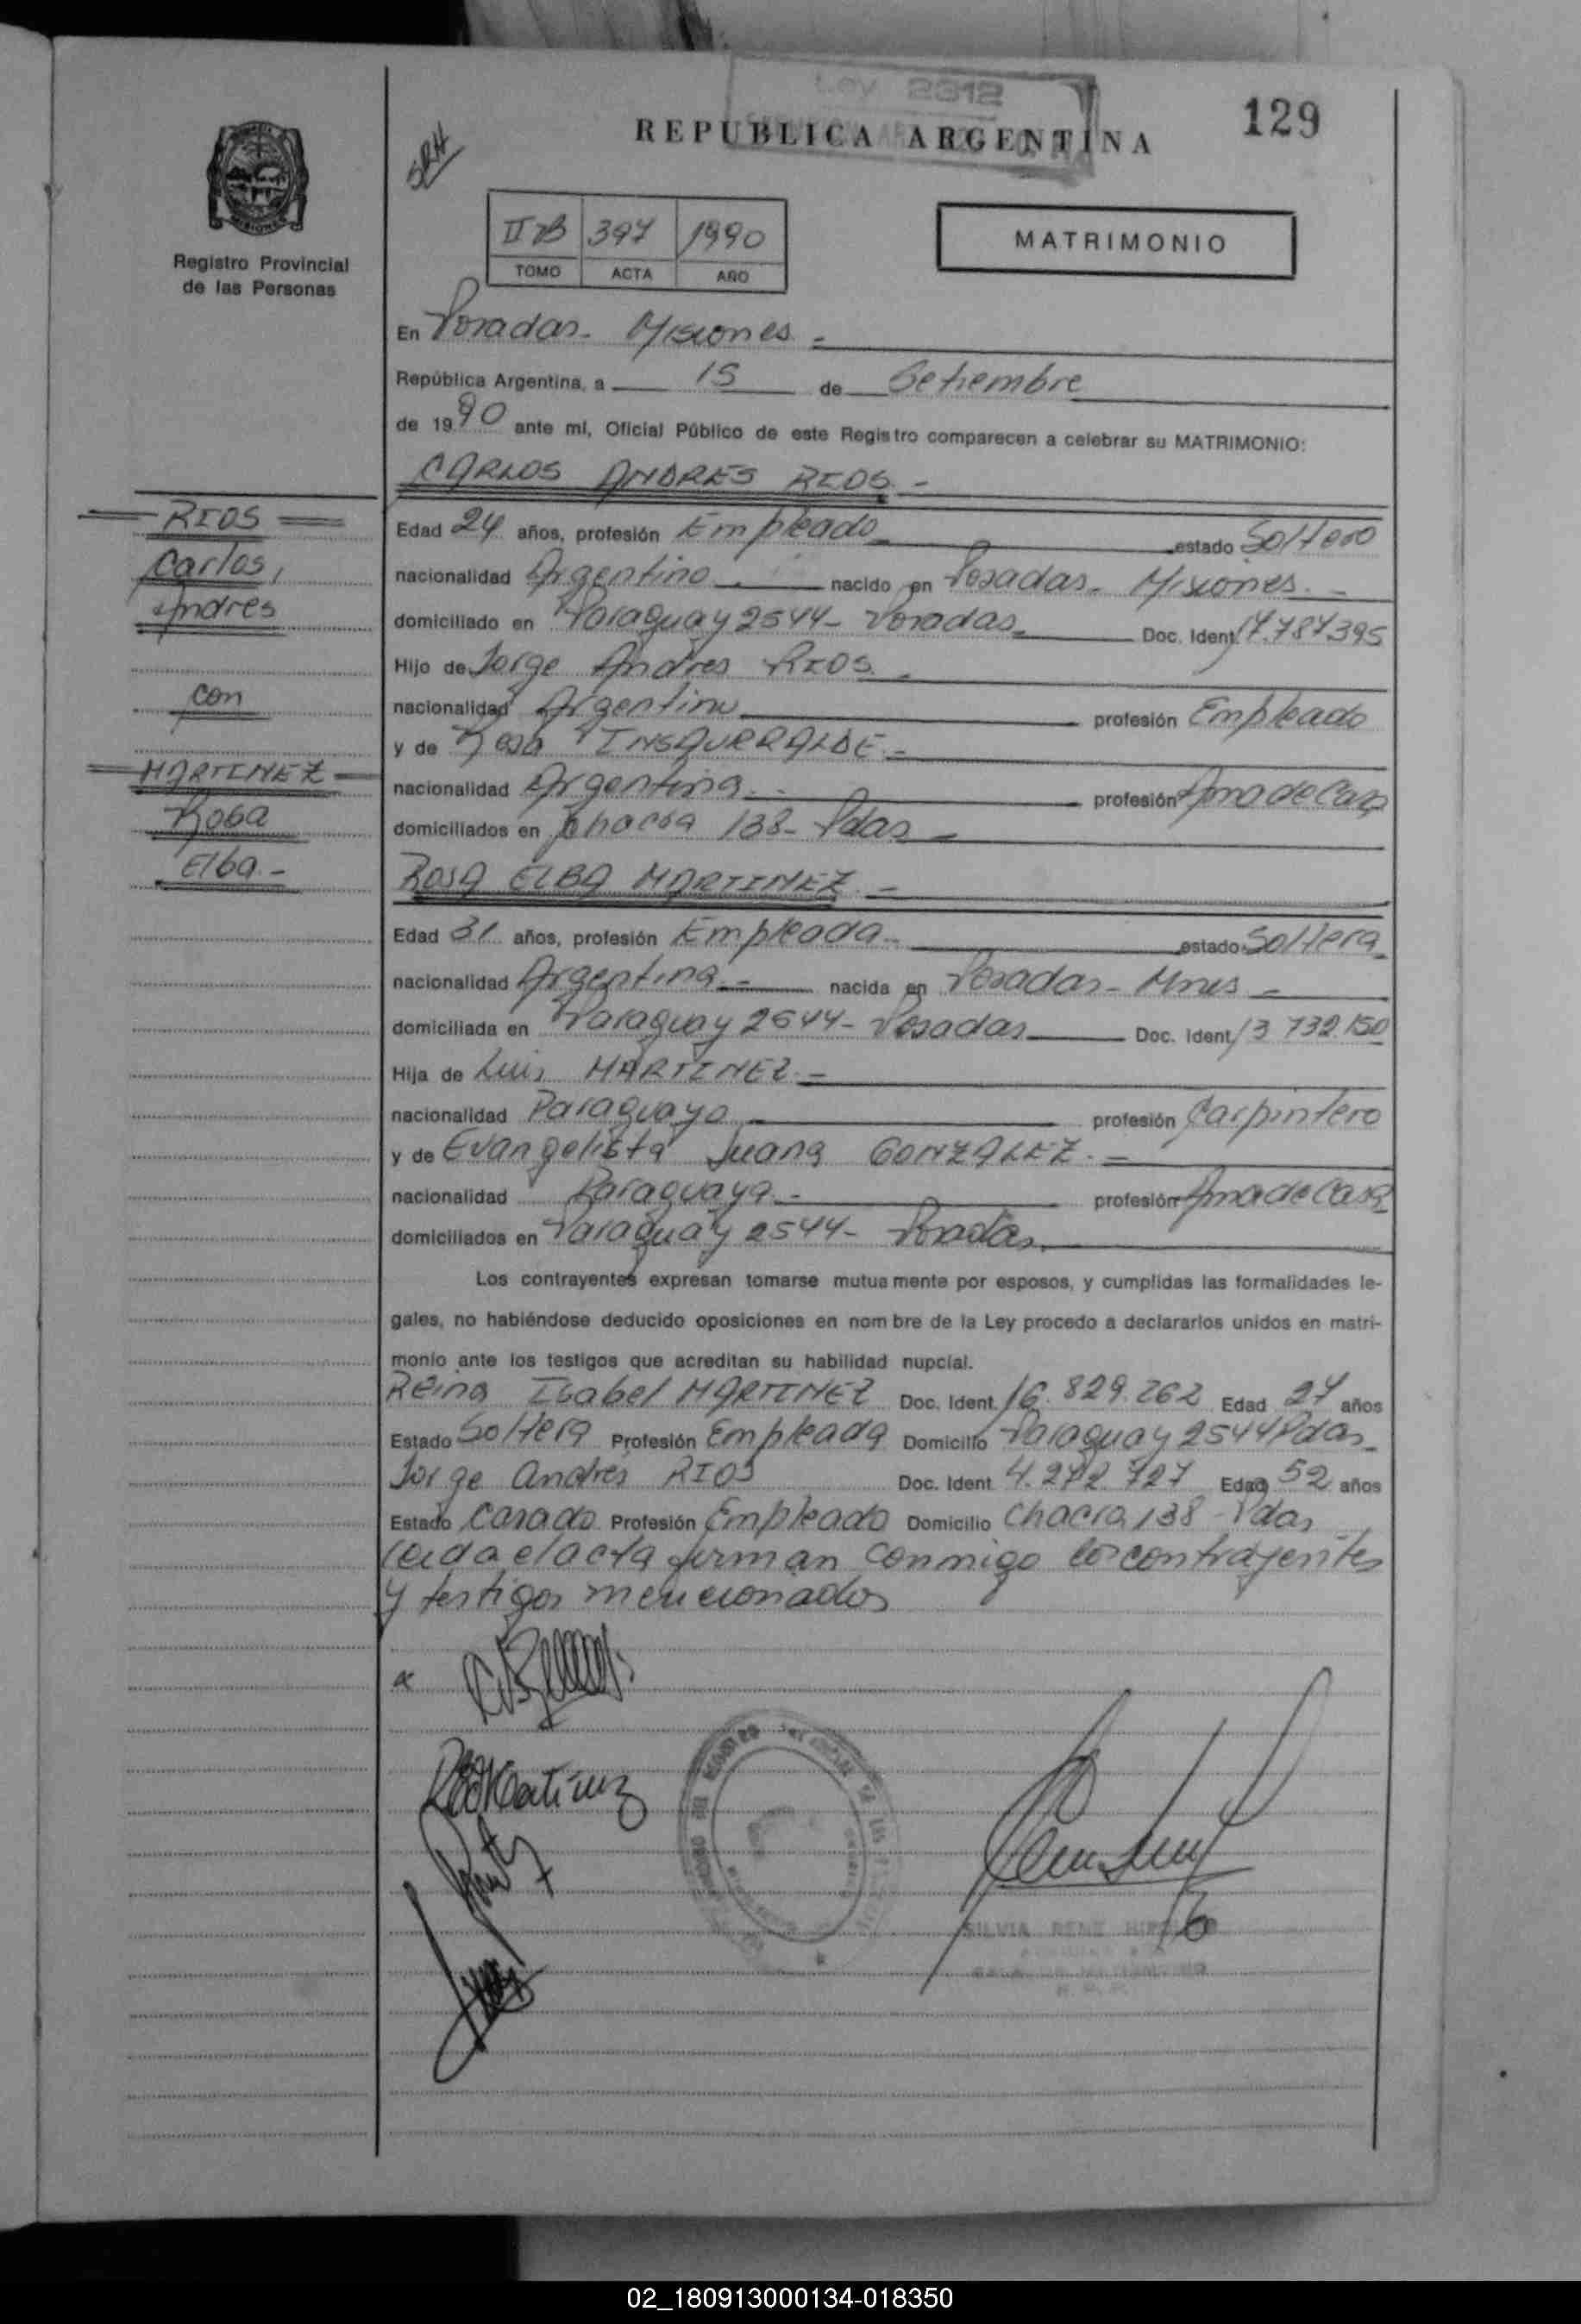 Ley 2312
129
REPUBLICA ARGENTINA
SRH
II B 397 1990
TOMO ACTA AÑO
MATRIMONIO
Registro Provincial
de las Personas
En Posadas - Misiones.-
República Argentina, a 15 de Setiembre
de 1990 ante mi, Oficial Público de este Registro comparecen a celebrar su MATRIMONIO:
CARLOS ANDRES RIOS.-
RIOS
Carlos,
Andres
con
MARTINEZ
Rosa
Elba.-
Edad 24 años, profesión Empleado estado Soltero
nacionalidad Argentino.- nacido en Posadas - Misiones.-
domiciliado en Paraguay 2544 - Posadas Doc. Ident. 17.787.395
Hijo de Jorge Andres RIOS.-
nacionalidad Argentino profesión Empleado
y de Rosa INSAURRALDE.-
nacionalidad Argentina.- profesión Ama de Casa
domiciliados en Chacra 138 - Pdas -
ROSA ELBA MARTINEZ.-
Edad 31 años, profesión Empleada.- estado Soltera
nacionalidad Argentina.- nacida en Posadas - Mnes -
domiciliada en Paraguay 2544 - Posadas Doc. Ident. 13 732.150
Hija de Luis MARTINEZ.-
nacionalidad Paraguayo profesión Carpintero
y de Evangelista Juana GONZALEZ.-
nacionalidad Paraguaya.- profesión Ama de Casa
domiciliados en Paraguay 2544 - Posadas
Los contrayentes expresan tomarse mutuamente por esposos, y cumplidas las formalidades le-
gales, no habiéndose deducido oposiciones en nombre de la Ley procedo a declararlos unidos en matri-
monio ante los testigos que acreditan su habilidad nupcial.
Reina Isabel MARTINEZ Doc. Ident. 16.829.262 Edad 27 años
Estado Soltera Profesión Empleada Domicilio Paraguay 2544 Pdas -
Jorge Andrés RIOS Doc. Ident. 4.272.727 Edad 52 años
Estado Casado Profesión Empleado Domicilio Chacra 138 - Pdas
Leida el acta firman conmigo los contrayentes
y testigos mencionados
SILVIA RENE
02_180913000134-018350